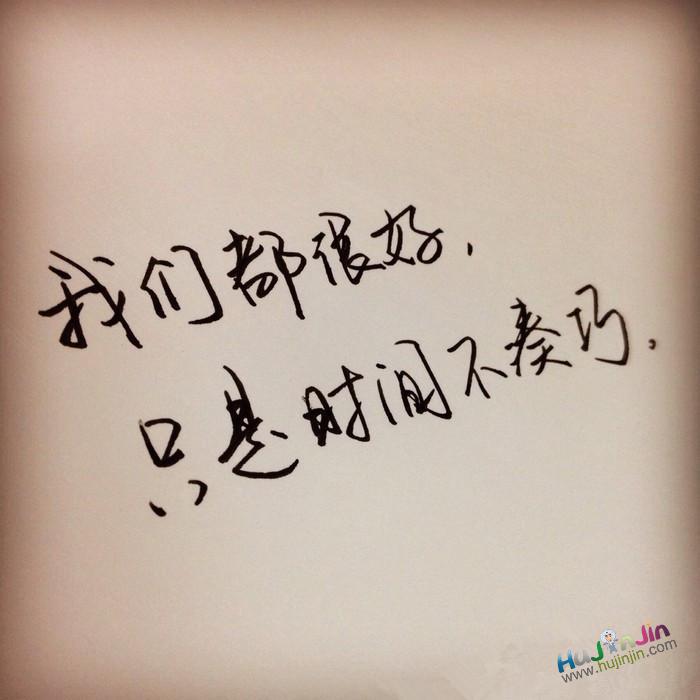 我们都很好.
只是时间不凑巧.
HuJinJin
www.hujinjin.com